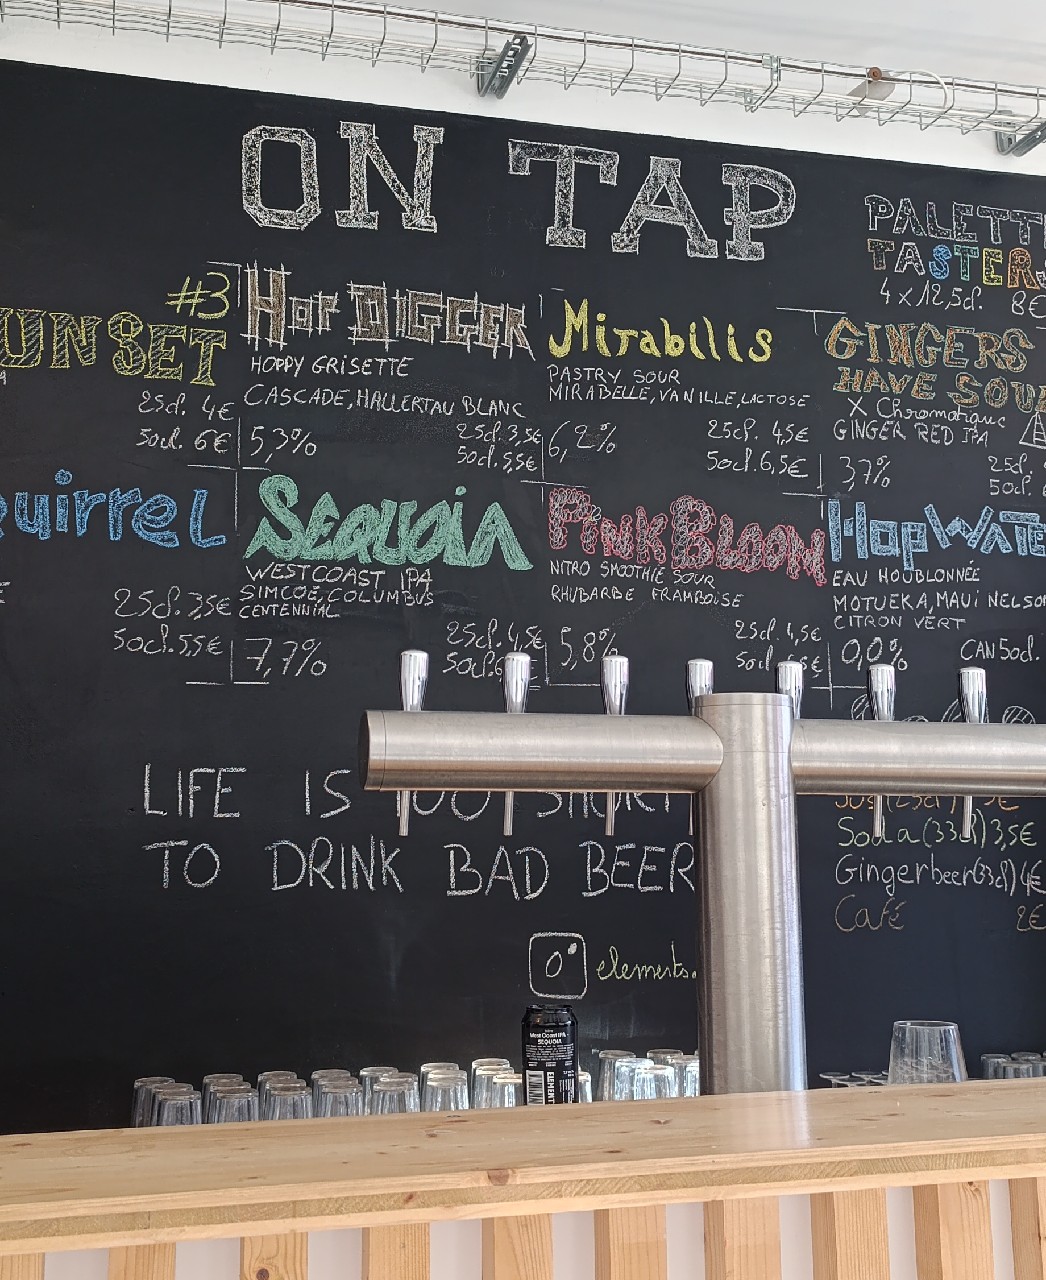 ON TAP
PALETT
TASTERS
4 x 12,5cl. 8€
#3
UNSET
25cl. 4€
50cl. 6€
HOP DIGGER
HOPPY GRISETTE
CASCADE, HALLERTAU BLANC
5,3%
25cl. 3,5€
50cl. 5,5€
Mirabilis
PASTRY SOUR
MIRABELLE, VANILLE, LACTOSE
6,2%
25cl. 4,5€
50cl. 6,5€
GINGERS
HAVE SOU
X Chromatique
GINGER RED IPA
3,7%
25cl.
50cl.
quirrel
25cl. 3,5€
50cl. 5,5€
SEQUOIA
WEST COAST IPA
SIMCOE, COLUMBUS
CENTENNIAL
7,7%
25cl. 4,5€
50cl. 6
PINK BLOOM
NITRO SMOOTHIE SOUR
RHUBARBE FRAMBOISE
5,8%
25cl. 4,5€
50cl.
HOP WATE
EAU HOUBLONNÉE
MOTUEKA, MAUI NELSON
CITRON VERT
0,0%
CAN 50cl.
LIFE IS TOO SHORT
TO DRINK BAD BEER
Soda (33cl) 3,5€
Gingerbeer (33cl) 4€
Café 2€
elements.
West Coast IPA
SEQUOIA
ELEMENT